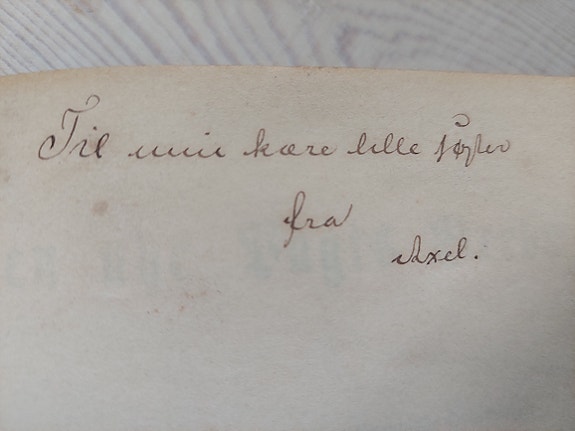 Til min kære lille søster
fra
Axel.